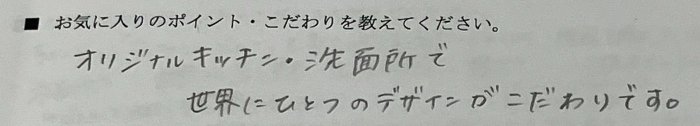 ■ お気に入りのポイント・こだわりを教えてください。
オリジナルキッチン・洗面所で
世界にひとつのデザインがこだわりです。